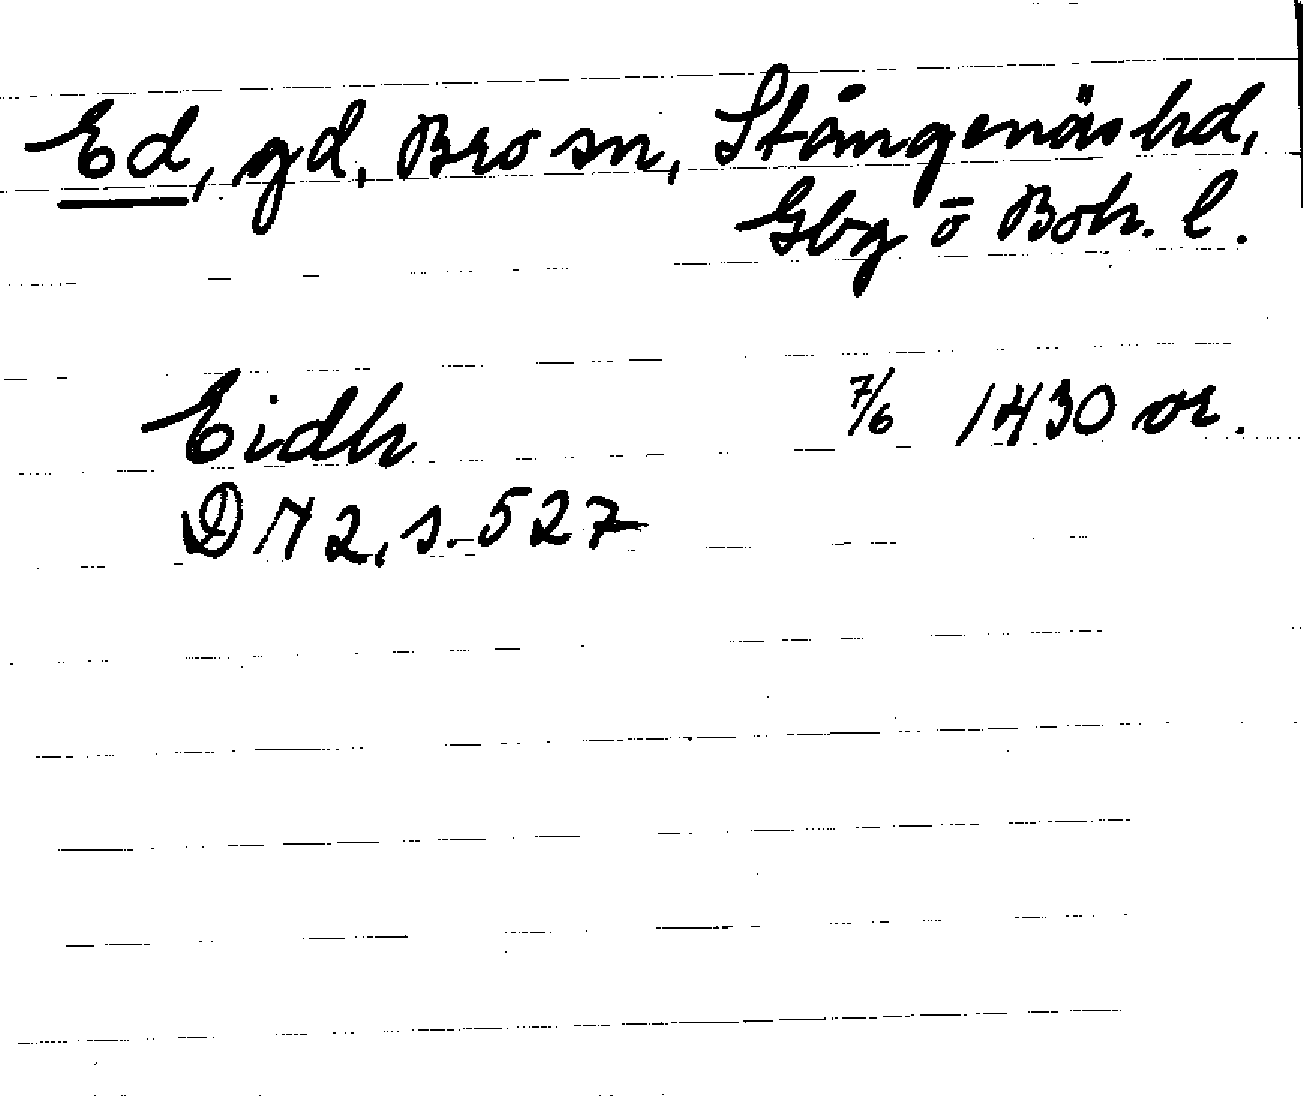 Ed, gd, Bro sn, Stångenäs hd,
Gbg o Boh. l.
Eidh 7/6 1430 or.
DN 2, s. 527